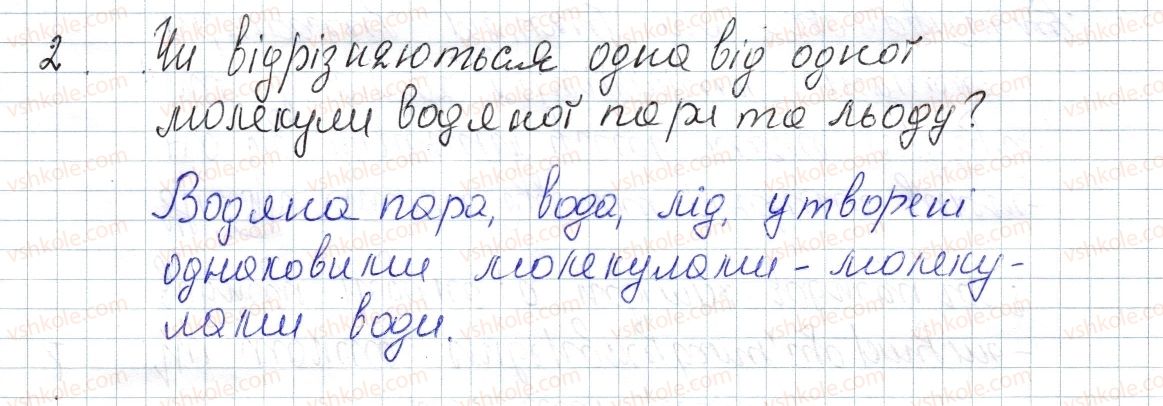 2. Чи відрізняються одна від одної
молекули водяної пари та льоду?
Водяна пара, вода, лід, утворені
однаковими молекулами - молеку-
лами води.